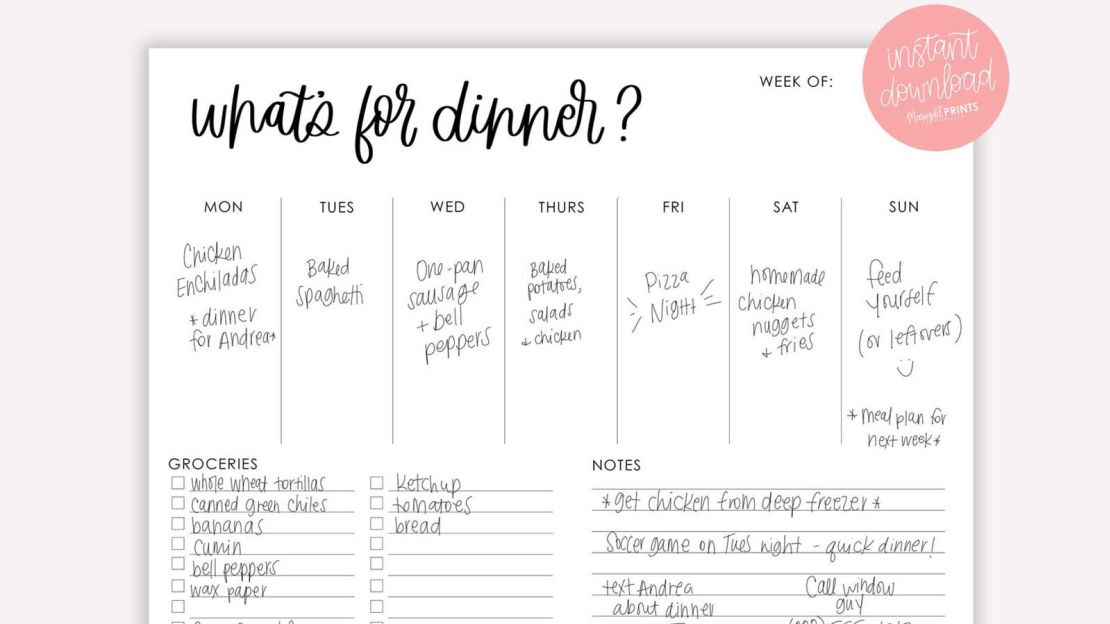 what's for dinner?
WEEK OF:
instant
download
PRINTS
MON
Chicken
Enchiladas
*dinner
for Andrea*
TUES
Baked
Spaghetti
WED
One-pan
sausage
+ bell
peppers
THURS
Baked
potatoes,
salads
& chicken
FRI
Pizza
Night
SAT
homemade
chicken
nuggets
& fries
SUN
feed
yourself
(or leftovers)
*meal plan for
next week*
GROCERIES
whole wheat tortillas
canned green chiles
bananas
cumin
bell peppers
wax paper
ketchup
tomatoes
bread
NOTES
*get chicken from deep freezer*
Soccer game on Tues night - quick dinner!
text Andrea
about dinner
Call window
guy